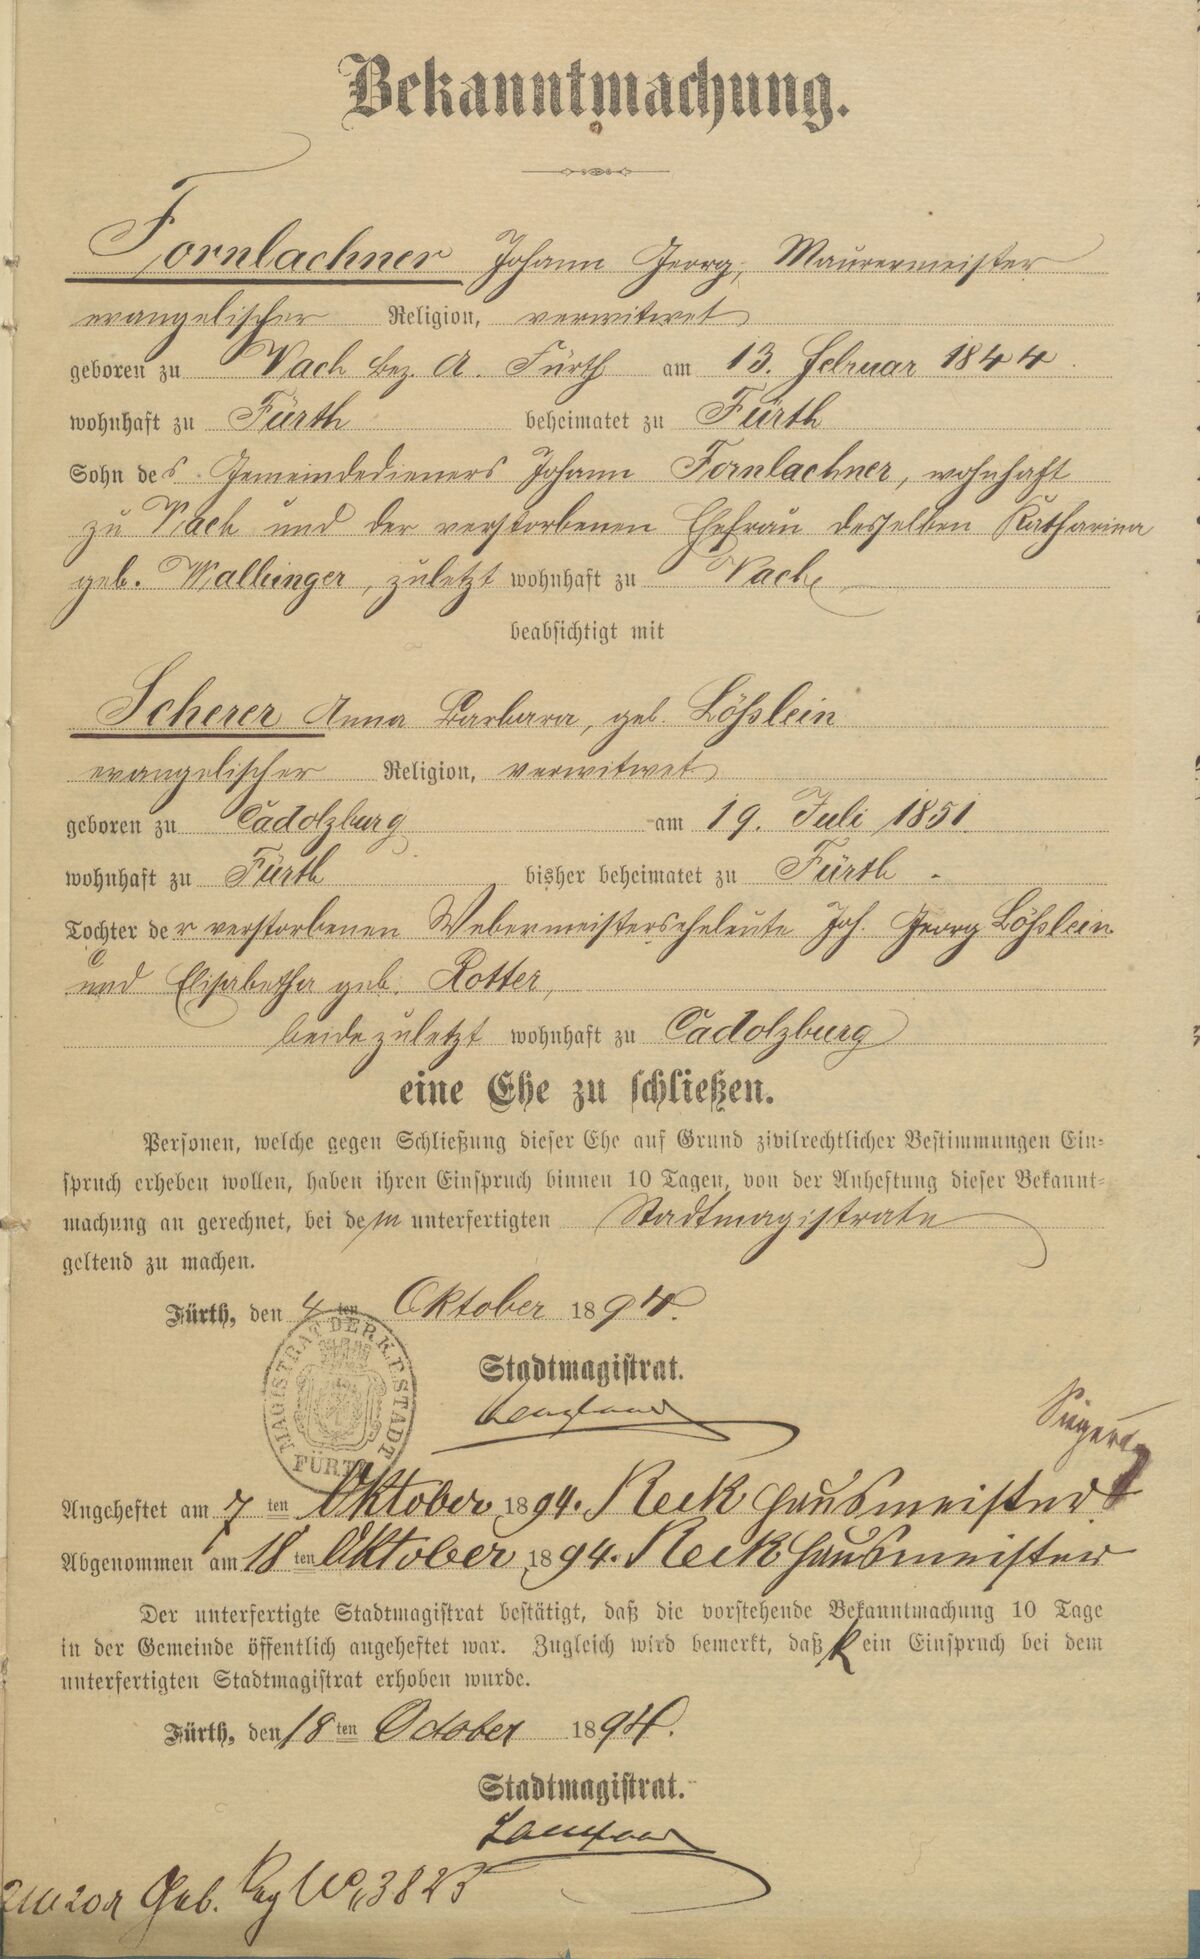 Bekanntmachung.
Fornbachner Johann Georg, Maurermeister
evangelischer Religion, verwitwet
geboren zu Vach bez. A. Fürth am 13. Februar 1844
wohnhaft zu Fürth beheimatet zu Fürth
Sohn des Gemeindedieners Johann Fornbachner, wohnhaft
zu Vach und der verstorbenen Ehefrau desselben Katharina
geb. Wallinger, zuletzt wohnhaft zu Vach
beabsichtigt mit
Scherer Anna Barbara, geb. Lößlein
evangelischer Religion, verwitwet
geboren zu Cadolzburg am 19. Juli 1851.
wohnhaft zu Fürth bisher beheimatet zu Fürth
Tochter der verstorbenen Webermeisterseheleute Joh. Georg Lößlein
und Elisabetha geb. Rotter,
beide zuletzt wohnhaft zu Cadolzburg
eine Ehe zu schließen.
Personen, welche gegen Schließung dieser Ehe auf Grund zivilrechtlicher Bestimmungen Ein-
spruch erheben wollen, haben ihren Einspruch binnen 10 Tagen, von der Anheftung dieser Bekannt-
machung an gerechnet, bei dem unterfertigten Stadtmagistrate
geltend zu machen.
Fürth, den 4ten Oktober 1894.
MAGISTRAT DER K. STADT FÜRTH
Stadtmagistrat.
Angeheftet am 7ten Oktober 1894. Reck Hausmeister
Abgenommen am 18ten Oktober 1894. Reck Hausmeister
Der unterfertigte Stadtmagistrat bestätigt, daß die vorstehende Bekanntmachung 10 Tage
in der Gemeinde öffentlich angeheftet war. Zugleich wird bemerkt, daß kein Einspruch bei dem
unterfertigten Stadtmagistrat erhoben wurde.
Fürth, den 18ten October 1894.
Stadtmagistrat.
Geb. Reg No 3825